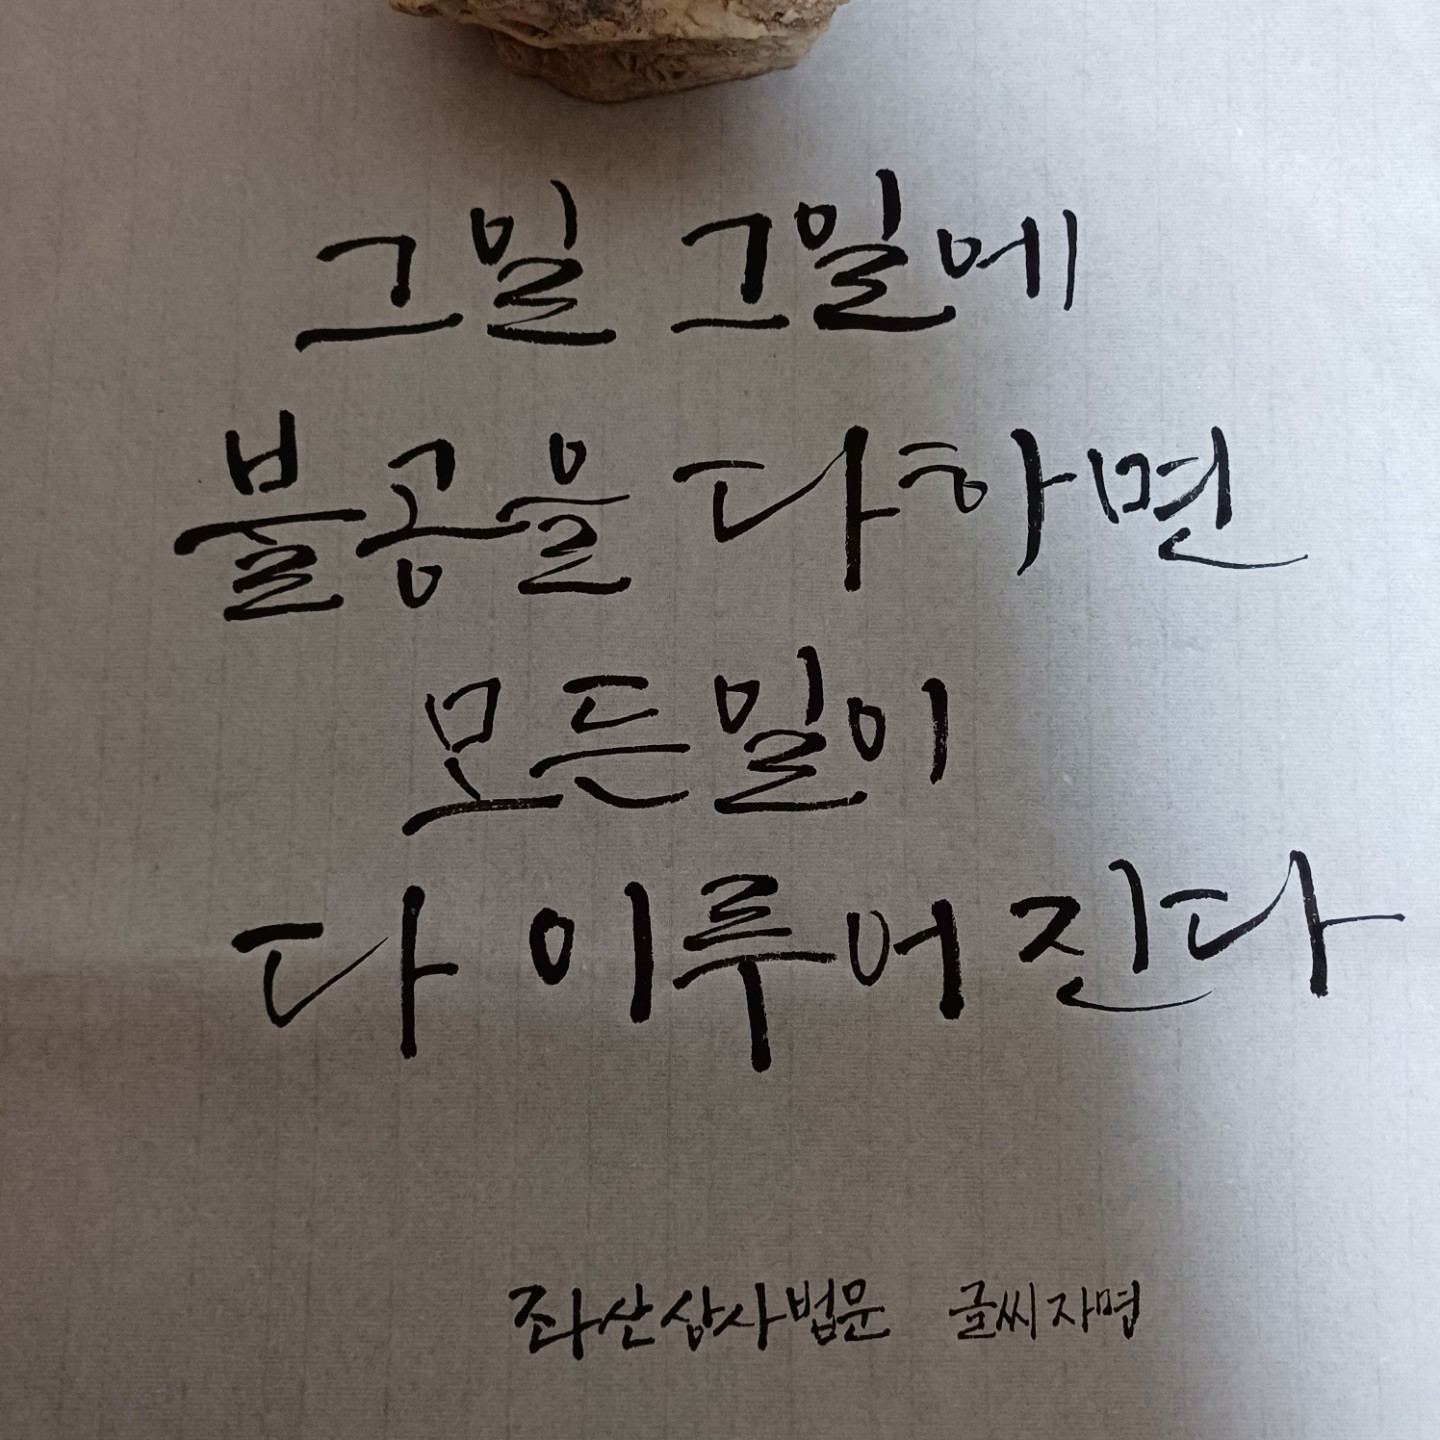 그일 그일에
불공을 다하면
모든일이
다 이루어 진다
좌산상사법문 글씨자명